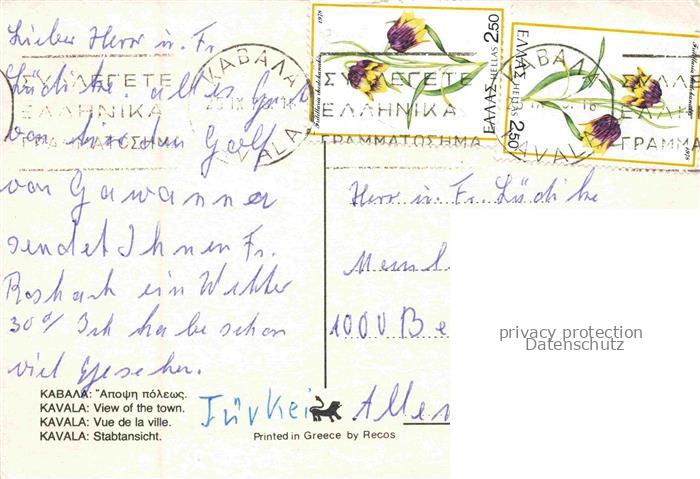 Lieber Herr u. Fr.
Lüdicke. alles Gute
von hir den Golf
von Gawanna
sendet Ihnen Fr.
ein Wetter
30° Ich habe schon
viel gesehen.
ΚΑΒΑΛΑ: Ἄποψη πόλεως.
KAVALA: View of the town.
KAVALA: Vue de la ville.
KAVALA: Stabtansicht.
Türkei
Printed in Greece by Recos
1978
2.50
ΕΛΛΑΣ HELLAS
ΕΛΛΑΣ HELLAS
2.50
1978
ΣΥΛΛΕΓΕΤΕ
ΕΛΛΗΝΙΚΑ
ΓΡΑΜΜΑΤΟΣΗΜΑ
ΚΑΒΑΛΑ
KAVALA
ΣΥΛΛΕΓΕΤΕ
ΕΛΛΗΝΙΚΑ
ΓΡΑΜΜΑΤΟΣΗΜΑ
ΚΑΒΑΛΑ
KAVALA
ΓΡΑΜΜ
Herr u. Fr. Lüdicke
1000 Be
Allem
privacy protection
Datenschutz